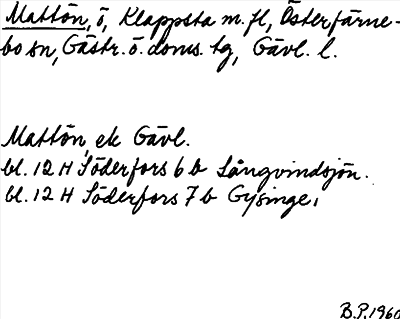 Mattön, ö, Klappsta m.fl, Österfärne-
bo sn, Gästr. ö. doms. tg, Gävl. l.
Mattön, ek Gävl.
bl. 12 H Söderfors 6 b Långvindsjön.
bl. 12 H Söderfors 7 b Gysinge,
B.P. 1960